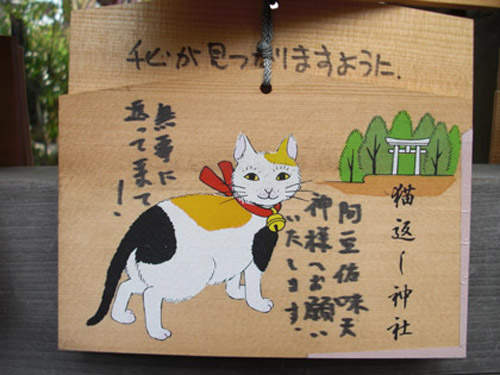 が見つかりますように.
猫返し神社
阿豆佐味天
神様へお願い
いたします.
無事に
返って来て!